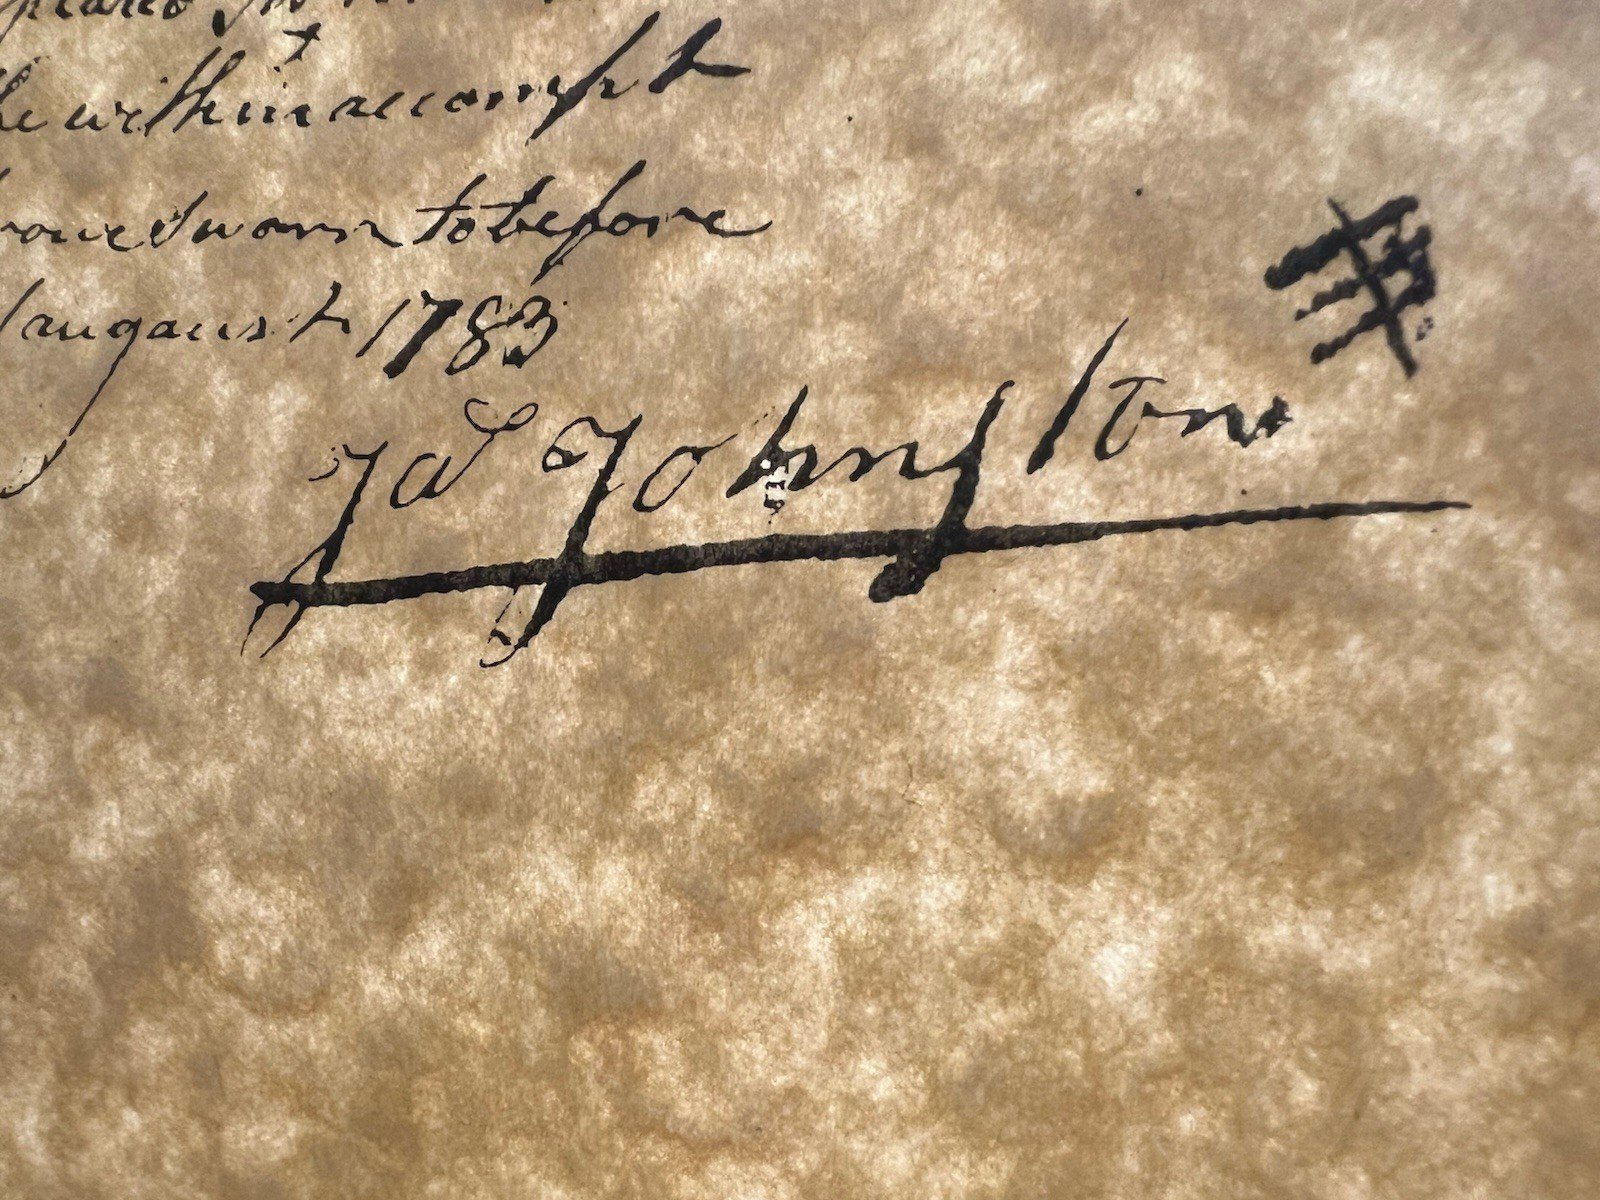 the within accompt
sworn to before
august 1783
Jas Johnston